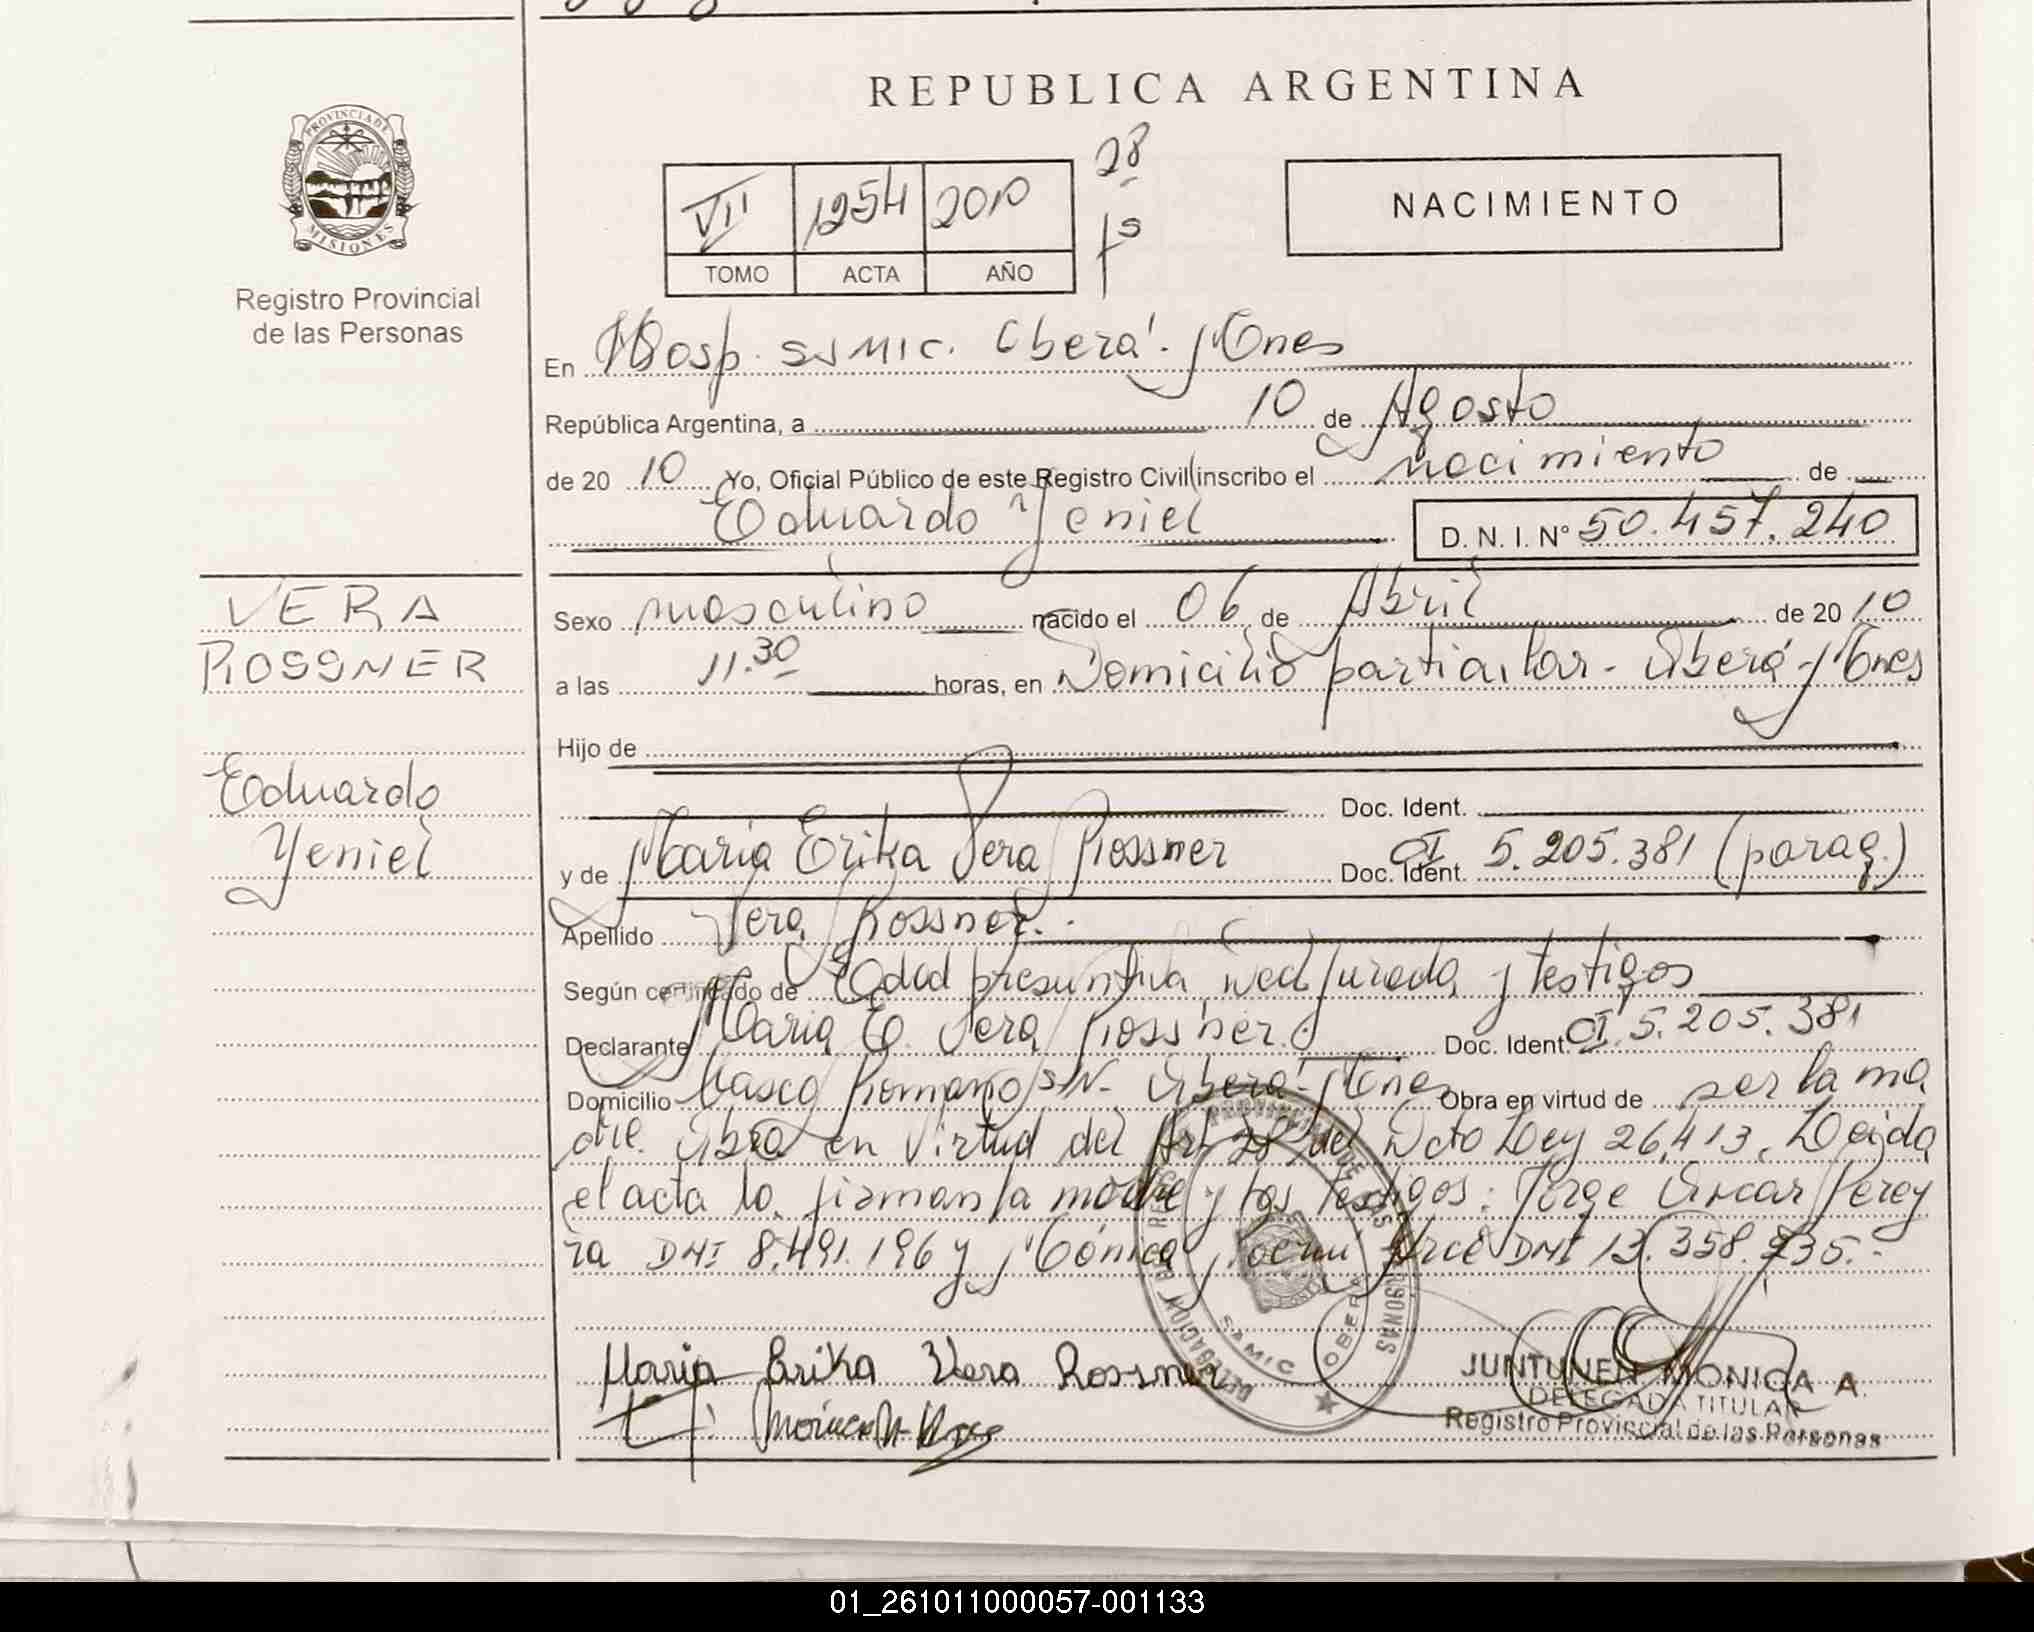 REPUBLICA ARGENTINA
PROVINCIA DE
MISIONES
Registro Provincial
de las Personas
VII 1254 2010 28
TOMO ACTA AÑO fs
NACIMIENTO
En Hosp. SAMIC. Oberá. Mnes
República Argentina, a 10 de Agosto
de 20 10 Yo, Oficial Público de este Registro Civil inscribo el nacimiento de
Eduardo Yeniel D. N. I. Nº 50.457.240
VERA
ROSSNER
Eduardo
Yeniel
Sexo masculino nacido el 06 de Abril de 20 10
a las 11.30 horas, en Domicilio particular - Oberá - Mnes
Hijo de
Doc. Ident.
y de María Erika Vera Rossner Doc. Ident. CI 5.205.381 (parag.)
Apellido Vera Rossner.
Según certificado de Edad presuntiva Decl jurada y testigos
Declarante Maria E. Vera Rossner. Doc. Ident. CI. 5.205.381
Domicilio Vasco Romano S/N - Oberá - Mnes Obra en virtud de ser la ma
dre. Obra en virtud del Art 28 del Dcto Ley 26.413. Leída
el acta la firman la madre y los testigos: Jorge Oscar Perey
ra DNI 8.491.196 y Mónica Noemí Arce DNI 13.358.935.-
DELEGACION REGISTRO PROVINCIAL DE LAS PERSONAS
SAMIC OBERA
Maria Erika Vera Rossner
Monica N. Arce
JUNTUNEN MONICA A
DELEGADA TITULAR
Registro Provincial de las Personas
01_261011000057-001133